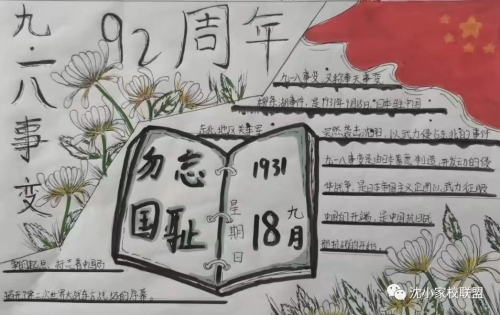 九·一八事变
92周年
九一八事变，又称奉天事变
柳条湖事件，是1931年9月18日，日本驻中国
东北地区关东军
突然袭击沈阳，以武力侵占东北的事件
九一八事变是由日本蓄意制造，并发动的侵
华战争，是日本帝国主义企图以武力征服
中国的开端，是中国抗日战
争的起点，
揭开了第二次世界大战东方战场的序幕。
勿忘国耻
1931
九月
18
星期日
沈小家校联盟